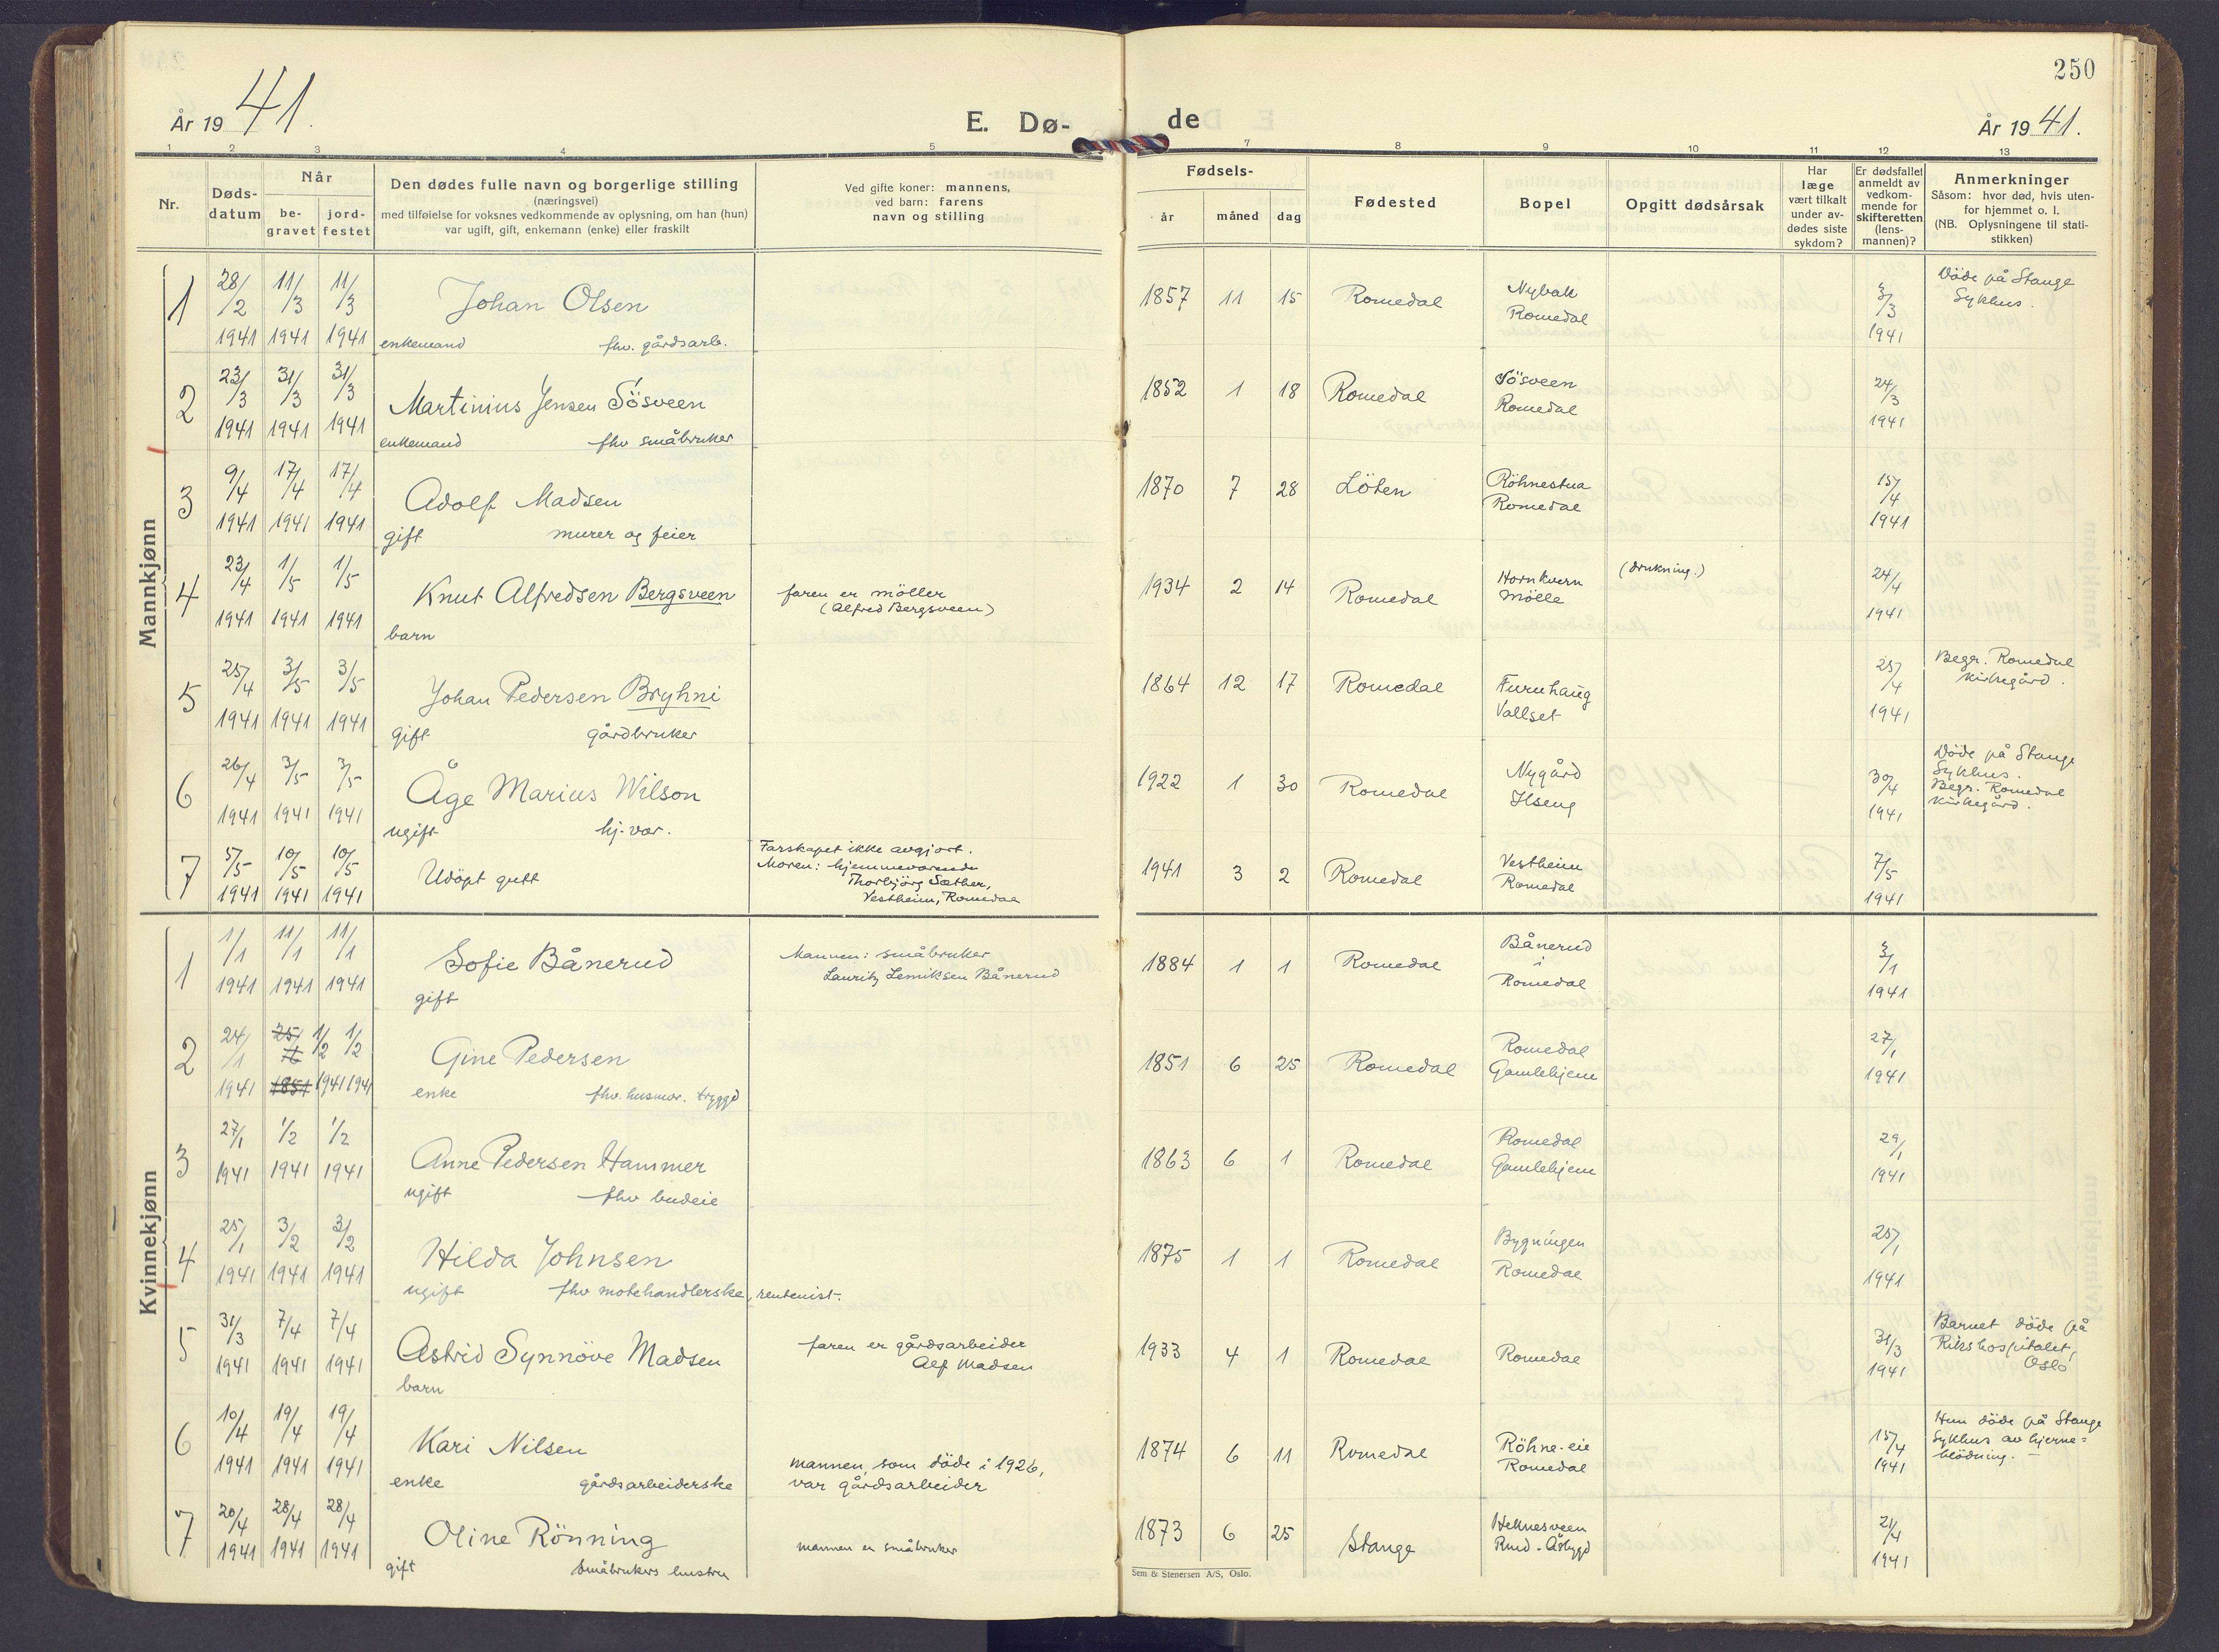 250
År 1941.
E. Dø-
de
År 1941.
1 2 3 4 5
7 8 9 10 11 12 13
Nr.
Døds-
datum
Når
be-
gravet
jord-
festet
Den dødes fulle navn og borgerlige stilling
(næringsvei)
med tilføielse for voksnes vedkommende av oplysning, om han (hun)
var ugift, gift, enkemann (enke) eller fraskilt
Ved gifte koner: mannens,
ved barn: farens
navn og stilling
Fødsels-
år måned dag
Fødested
Bopel
Opgitt dødsårsak
Har
læge
vært tilkalt
under av-
dødes siste
sykdom?
Er dødsfallet
anmeldt av
vedkom-
mende for
skifteretten
(lens-
mannen)?
Anmerkninger
Såsom: hvor død, hvis uten-
for hjemmet o. l.
(NB. Oplysningene til stati-
stikken)
Mannkjønn
1 28/2 1941 11/3 1941 11/3 1941
Johan Olsen
enkemand fhv. gårdsarb.
1857 11 15 Romedal
Nybak
Romedal
3/3 1941
Døde på Stange
Sykhus.
2 23/3 1941 31/3 1941 31/3 1941
Martinius Jensen Sösveen
enkemand fhv småbruker
1852 1 18 Romedal
Sösveen
Romedal
24/3 1941
3 9/4 1941 17/4 1941 17/4 1941
Adolf Madsen
gift murer og feier
1870 7 28 Löten
Röhnestua
Romedal
15/4 1941
4 23/4 1941 1/5 1941 1/5 1941
Knut Alfredsen Bergsveen
barn
faren er möller
(Alfred Bergsveen)
1934 2 14 Romedal
Hornkvern
Mölle
(drukning.)
24/4 1941
5 25/4 1941 3/5 1941 3/5 1941
Johan Pedersen Bryhni
gift gårdbruker
1864 12 17 Romedal
Furuhaug
Vallset
25/4 1941
Begr. Romedal
Kirkegård.
6 26/4 1941 3/5 1941 3/5 1941
Åge Marius Wilson
ugift hj-vær.
1922 1 30 Romedal
Nygård
Ilseng
30/4 1941
Døde på Stange
Sykhus.
Begr. Romedal
Kirkegård.
7 5/5 1941 10/5 1941 10/5 1941
Udöpt gutt
Farskapet ikke avgjort.
Moren: hjemmeværende
Thorbjörg Sæther,
Vestheim, Romedal
1941 3 2 Romedal
Vestheim
Romedal
7/5 1941
Kvinnekjønn
1 1/1 1941 11/1 1941 11/1 1941
Sofie Bånerud
gift
Mannen: småbruker
Lauritz Lemiksen Bånerud
1884 1 1 Romedal
Bånerud
i
Romedal
3/1 1941
2 24/1 1941 25/ 1851 1/2 1941 1/2 1941
Gine Pedersen
enke fhv. husmor. trygd
1851 6 25 Romedal
Romedal
Gamlehjem
27/1 1941
3 27/1 1941 1/2 1941 1/2 1941
Anne Pedersen Hammer
ugift fhv budeie
1863 6 1 Romedal
Romedal
Gamlehjem
29/1 1941
4 25/1 1941 3/2 1941 3/2 1941
Hilda Johnsen
ugift fhv motehandlerske, rentenist.
1875 1 1 Romedal
Bygningen
Romedal
25/1 1941
5 31/3 1941 7/4 1941 7/4 1941
Astrid Synnöve Madsen
barn
faren er gårdsarbeider
Alf Madsen
1933 4 1 Romedal
Romedal
31/3 1941
Barnet döde på
Rikshospitalet,
Oslo
6 10/4 1941 19/4 1941 19/4 1941
Kari Nilsen
enke gårdsarbeiderske
mannen, som döde i 1926,
var gårdsarbeider
1874 6 11 Romedal
Röhne-eie
Romedal
15/4 1941
Hun döde på Stange
Sykhus av hjerne=
blödning.
7 20/4 1941 28/4 1941 28/4 1941
Oline Rönning
gift småbrukers hustru
mannen er småbruker
1873 6 25 Stange
Heknesveen
Rud-Åsbygd
21/4 1941
Sem & Stenersen A/S, Oslo.